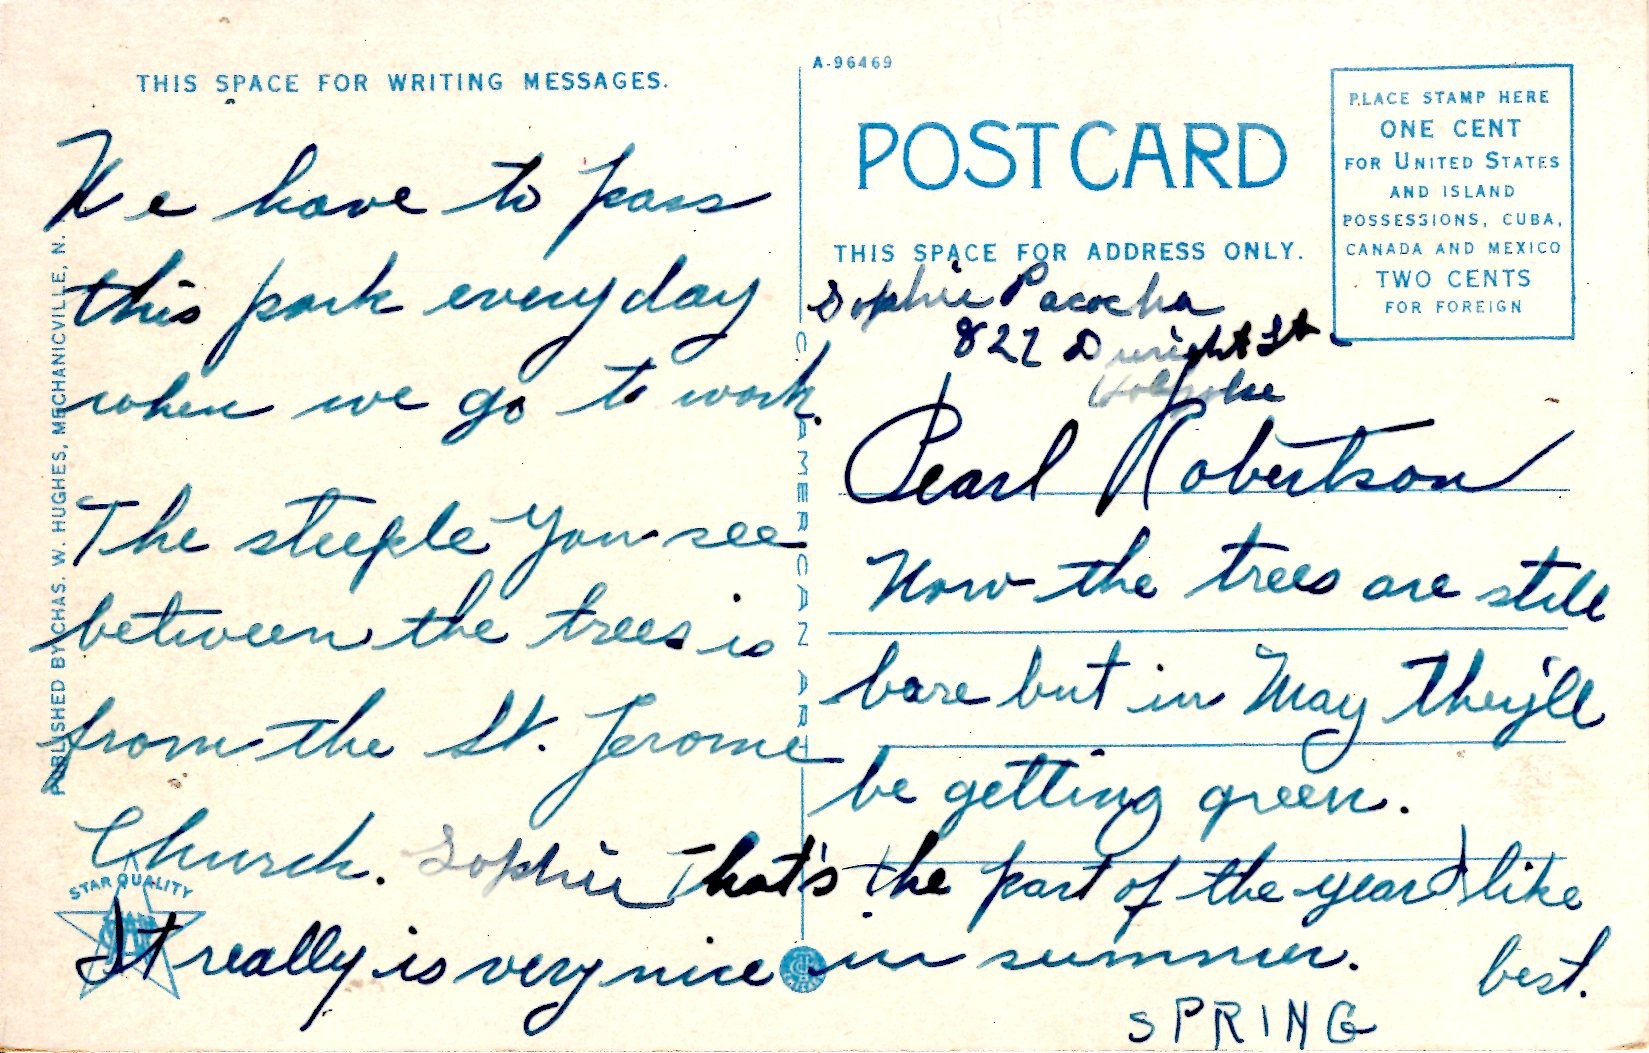 THIS SPACE FOR WRITING MESSAGES.
We have to pass
this park every day
when we go to work.
The steeple you see
between the trees is
from the St. Jerome
Church. Sophie
It really is very nice in summer.
PUBLISHED BY CHAS. W. HUGHES, MECHANICVILLE, N.
STAR QUALITY
C. T. AMERICAN ART
A-96469
POST CARD
THIS SPACE FOR ADDRESS ONLY.
PLACE STAMP HERE
ONE CENT
FOR UNITED STATES
AND ISLAND
POSSESSIONS, CUBA,
CANADA AND MEXICO
TWO CENTS
FOR FOREIGN
Sophie Pacocha
827 Dwight St
Holyoke
Pearl Robertson
Now the trees are still
bare but in May they'll
be getting green.
That's the part of the year I like
best.
SPRING